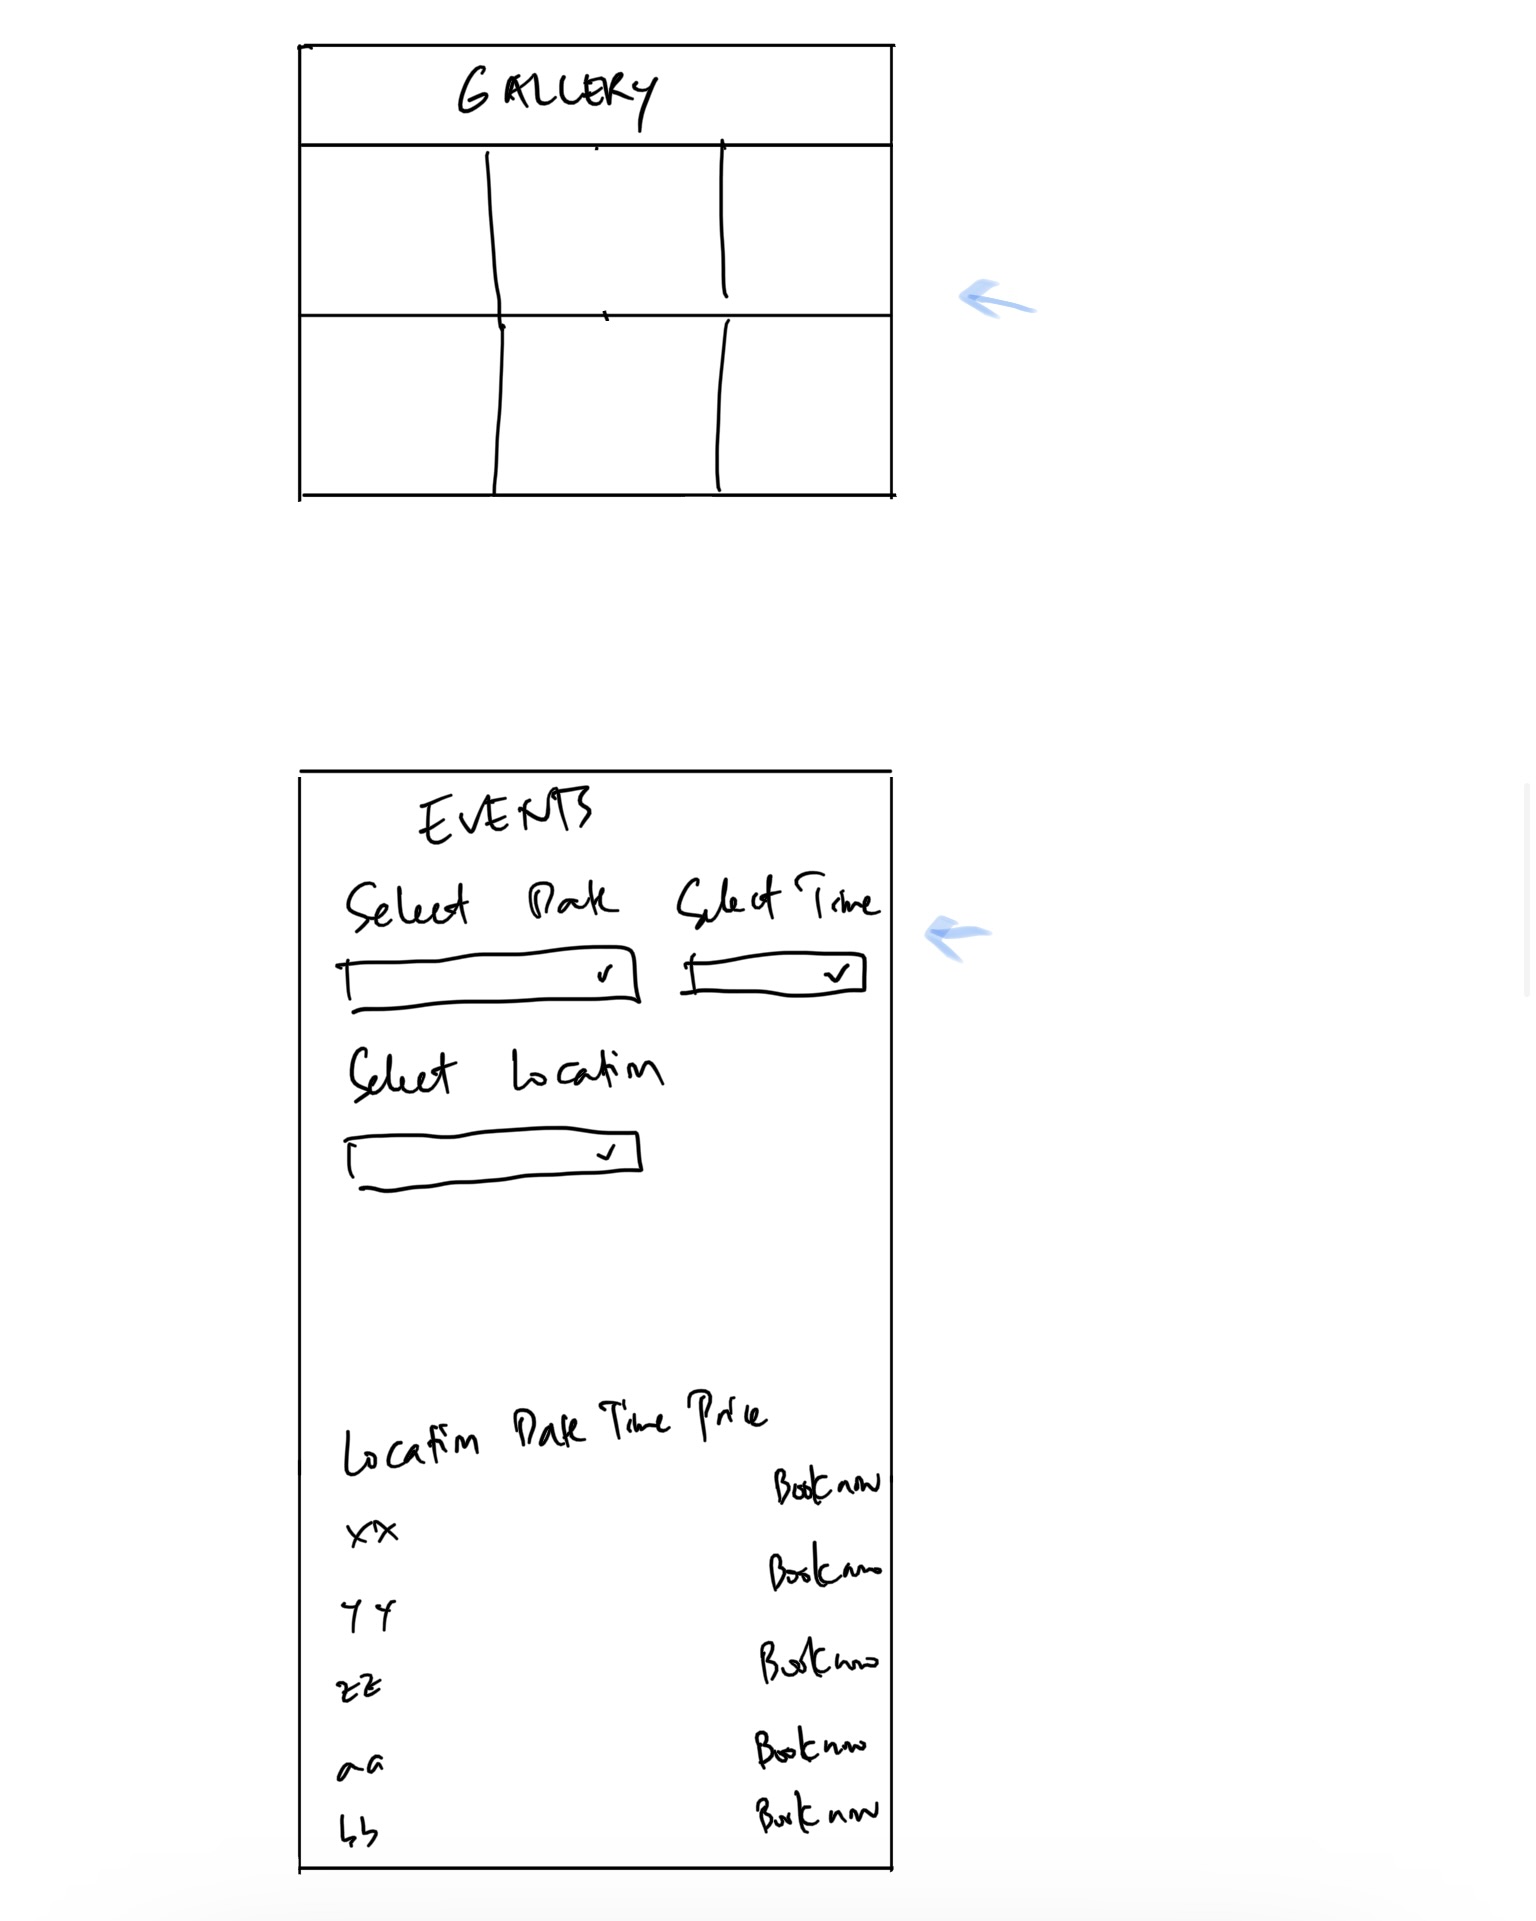 GALLERY
EVENTS
Select Date Select Time
Select Location
Location Date Time Price
Book now
xx
Book now
YY
Book now
zz
Book now
aa
Book now
bb